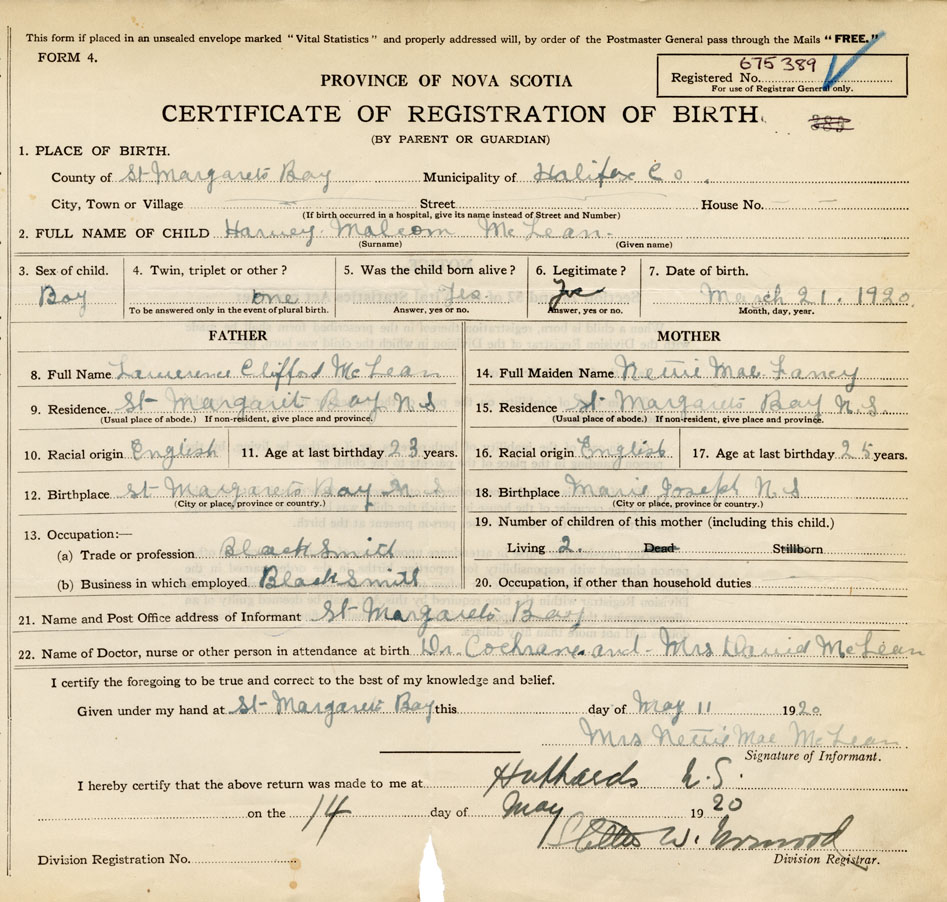 This form if placed in an unsealed envelope marked "Vital Statistics" and properly addressed will, by order of the Postmaster General pass through the Mails "FREE."
FORM 4.
675389
Registered No.
For use of Registrar General only.
PROVINCE OF NOVA SCOTIA
CERTIFICATE OF REGISTRATION OF BIRTH
(BY PARENT OR GUARDIAN)
1. PLACE OF BIRTH.
County of St Margarets Bay Municipality of Halifax Co.
City, Town or Village Street House No.
(If birth occurred in a hospital, give its name instead of Street and Number)
2. FULL NAME OF CHILD Harvey Malcom McLean
(Surname) (Given name)
3. Sex of child. 4. Twin, triplet or other? 5. Was the child born alive? 6. Legitimate? 7. Date of birth.
Boy one Yes Yes March 21. 1920
To be answered only in the event of plural birth. Answer, yes or no. Answer, yes or no. Month, day, year.
FATHER MOTHER
8. Full Name Lawerence Clifford McLean 14. Full Maiden Name Nettie Mae Fancy
9. Residence St Margaret Bay N S 15. Residence St Margarets Bay N.S.
(Usual place of abode.) If non-resident, give place and province. (Usual place of abode.) If non-resident, give place and province.
10. Racial origin English 11. Age at last birthday 23 years. 16. Racial origin English 17. Age at last birthday 25 years.
12. Birthplace St Margarets Bay N S 18. Birthplace Marie Joseph N.S
(City or place, province or country.) (City or place, province or country.)
13. Occupation:— 19. Number of children of this mother (including this child.)
(a) Trade or profession Black Smith Living 2. Dead Stillborn
(b) Business in which employed Black Smith 20. Occupation, if other than household duties
21. Name and Post Office address of Informant St Margarets Bay
22. Name of Doctor, nurse or other person in attendance at birth Dr. Cochrane and Mrs David McLean
I certify the foregoing to be true and correct to the best of my knowledge and belief.
Given under my hand at St Margarets Bay this day of May 11 1920
Mrs Nettie Mae McLean
Signature of Informant.
I hereby certify that the above return was made to me at N.S.
on the 14 day of May 1920
W. Norwood
Division Registration No. Division Registrar.